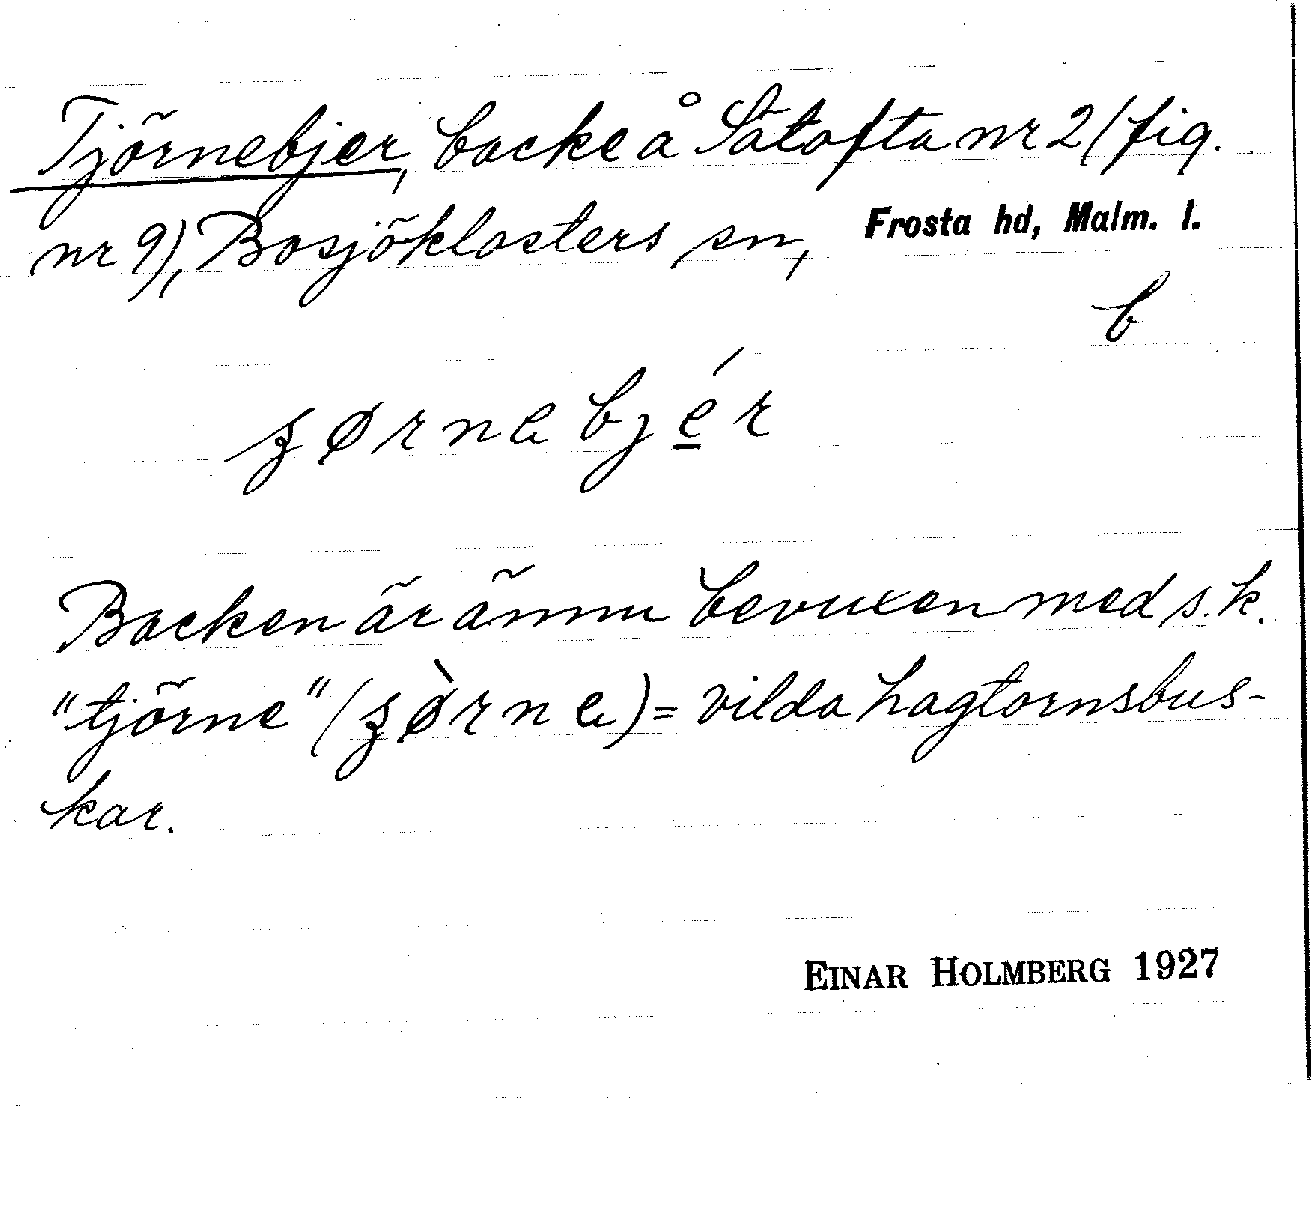 Tjörnebjer, backe å Sätofta nr 2 (fig.
nr 9), Bosjöklosters sn, Frosta hd, Malm. l.
b
ʒørnebjér
Backen är ännu bevuxen med s.k.
"tjörne" (ʒø̀rne) = vilda hagtornsbus-
kar.
EINAR HOLMBERG 1927